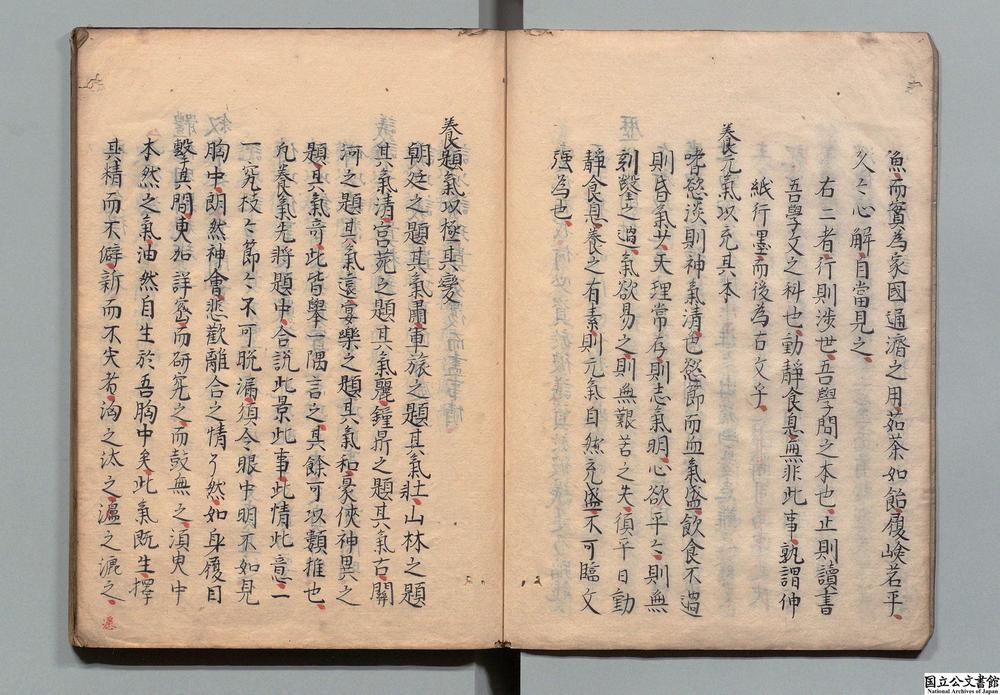 漁而實為家國通濟之用茹荼如飴履嶮若平
久〻心解自當見之
右二者行則涉世吾學問之本也止則讀書
吾學文之科也動靜食息無非此事孰謂伸
紙行墨而後為古文乎
養元氣以充其本
嗜慾淡則神氣清也慾節而血氣盛飲食不過
則皆氣其天理常存則志氣明心欲平〻則無
刻鏧之過氣欲易之則無艱苦之失須平日動
靜食息養之有素則元氣自然充盛不可臨文
強為也
養題氣以極其變
朝廷之題其氣肅軍旅之題其氣壯山林之題
其氣清宮苑之題其氣麗鐘鼎之題其氣古關
河之題其氣遠宴樂之題其氣和豪俠神異之
題其氣奇此皆舉一隅言之其餘可以類推也
凡養氣先將題中合說此景此事此情此意一
一究枝〻節〻不可脫漏須令眼中明不如見
胸中朗然神會悲歡離合之情了然如身履目
擊其間東 詳密而研究之而鼓無之須臾中
本然之氣油然自生於吾胸中矣此氣既生擇
其精而不僻新而不失者淘之汰之溫之漉之
國立公文書館
National Archives of Japan